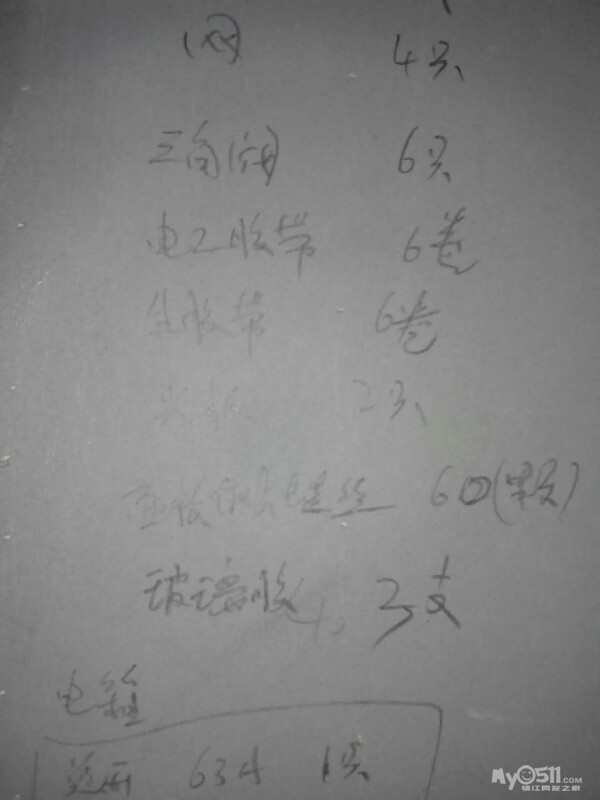 阀 4只
三角阀 6只
电工胶带 6卷
生胶带 6卷
2只
丝 60(颗)
玻璃胶 2支
电箱
63A 1只
My0511.com
镇江网友之家